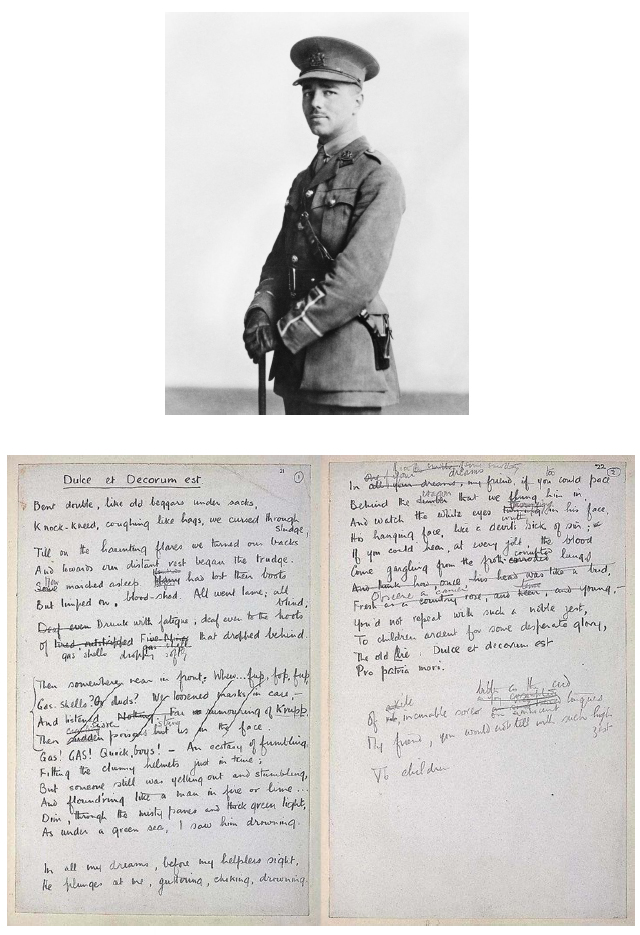 Dulce et Decorum est
21
1
Bent double, like old beggars under sacks,
Knock-kneed, coughing like hags, we cursed through
sludge,
Till on the haunting flares we turned our backs
And towards our distant rest began the trudge.
marched asleep. Many had lost their boots
But limped on, blood-shod. All went lame; all
blind;
Deaf even Drunk with fatigue; deaf even to the hoots
Of tired, outstripped Five-Nines that dropped behind.
gas shells dropping softly
Then somewhere near in front: Whew...fup, fop, fup
Gas-shells? Or duds? We loosened masks in case,—
And listened. Nothing. Far rumouring of Krupp,
Then sudden poisons hit us in the face.
Gas! GAS! Quick, boys!— An ecstasy of fumbling,
Fitting the clumsy helmets just in time;
But someone still was yelling out and stumbling,
And flound'ring like a man in fire or lime...
Dim, through the misty panes and thick green light,
As under a green sea, I saw him drowning.
In all my dreams, before my helpless sight,
He plunges at me, guttering, choking, drowning.
22
2
dreams
too
In all your dreams, my friend, if you could pace
Behind the wagon that we flung him in,
And watch the white eyes in his face,
His hanging face, like a devil's sick of sin;
If you could hear, at every jolt, the blood
Come gargling from the froth-corrupted lungs
And think how once his head was like a bud,
Obscene as cancer
Fresh as a country rose, and keen, and young,—
You'd not repeat with such a noble zest,
To children ardent for some desperate glory,
The old Lie: Dulce et decorum est
Pro patria mori.
bitter as the cud
Of vile, incurable sores on innocent tongues
My friend, you would not tell with such high
zest
To children